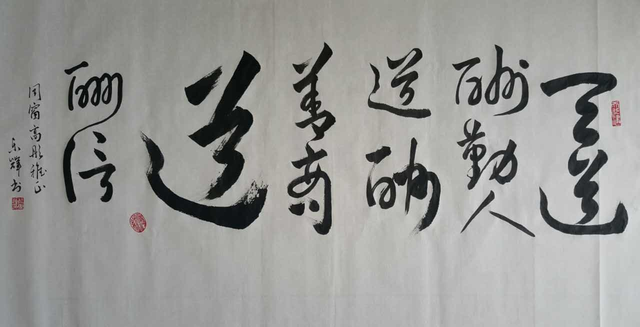 天道
酬勤人
道酬
善商
道
酬信
同窗高雅正
东辉书